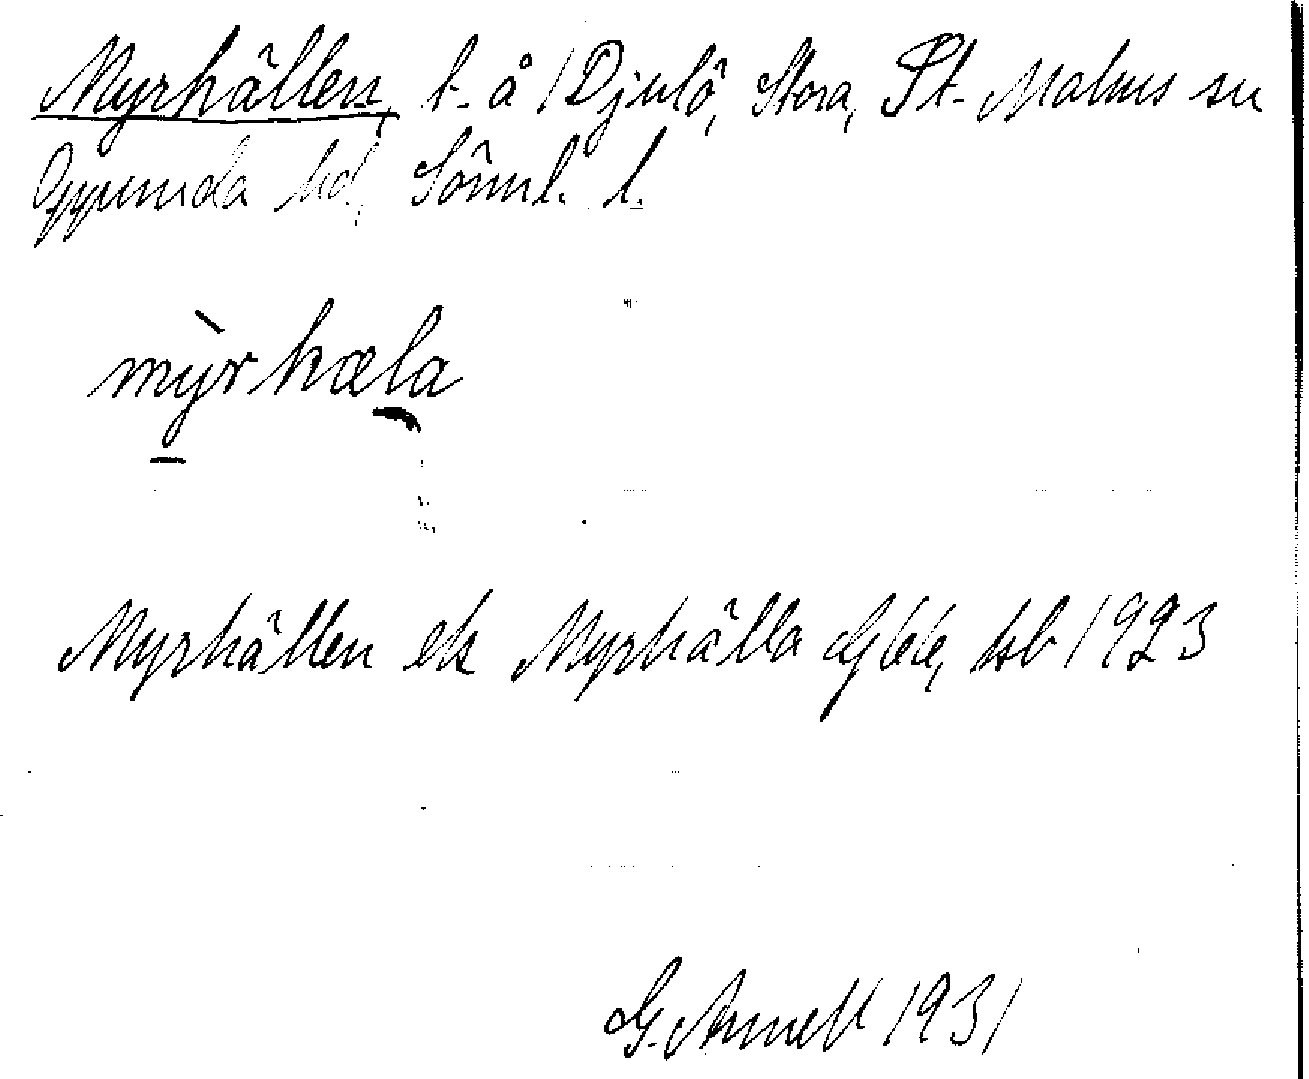 Myrhällen, t. å /Djulö, Stora, St. Malms sn
Oppunda hd, Sörml. l.
mỳrhæla
Myrhällen ek Myrhälla Gf66, hsb 1923
G. Annell 1931